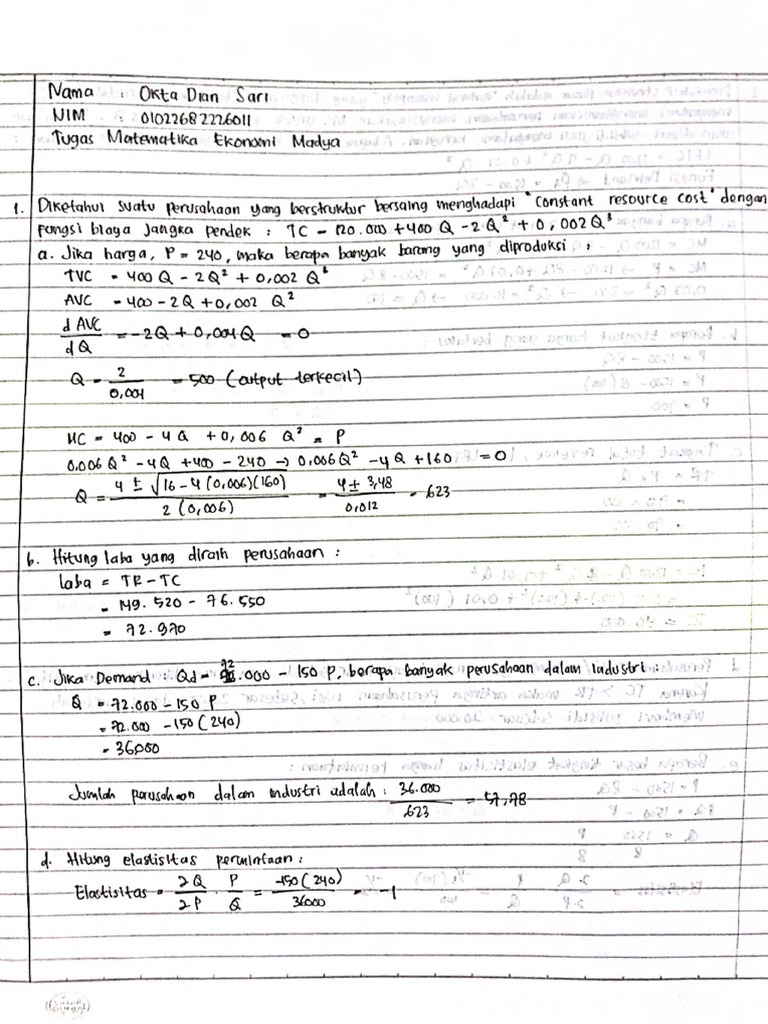 Nama : Okta Dian Sari
NIM : 01022682226011
Tugas Matematika Ekonomi Madya
1. Diketahui suatu perusahaan yang berstruktur bersaing menghadapi "Constant resource cost" dengan
fungsi biaya jangka pendek : TC = 120.000 + 400 Q - 2 Q² + 0,002 Q³
a. Jika harga, P = 240, maka berapa banyak barang yang diproduksi :
TVC = 400 Q - 2Q² + 0,002 Q³
AVC = 400 - 2Q + 0,002 Q²
d AVC / dQ = -2Q + 0,004 Q = 0
Q = 2 / 0,004 = 500 (output terkecil)
MC = 400 - 4 Q + 0,006 Q² = P
0.006 Q² - 4Q + 400 - 240 → 0.006 Q² - 4Q + 160 = 0
Q = 4 ± √16 - 4 (0,006)(160) / 2 (0,006) = 4 ± 3,48 / 0,012 = 623
b. Hitung laba yang diraih perusahaan :
laba = TR - TC
= 149.520 - 76.550
= 72.970
c. Jika Demand : Qd = 72.000 - 150 P, berapa banyak perusahaan dalam industri :
Q = 72.000 - 150 P
= 72.000 - 150 (240)
= 36000
Jumlah perusahaan dalam industri adalah : 36.000 / 623 = 57,78
d. Hitung elastisitas permintaan :
Elastisitas = 2Q / 2P · P / Q = -150 (240) / 36000 = -1